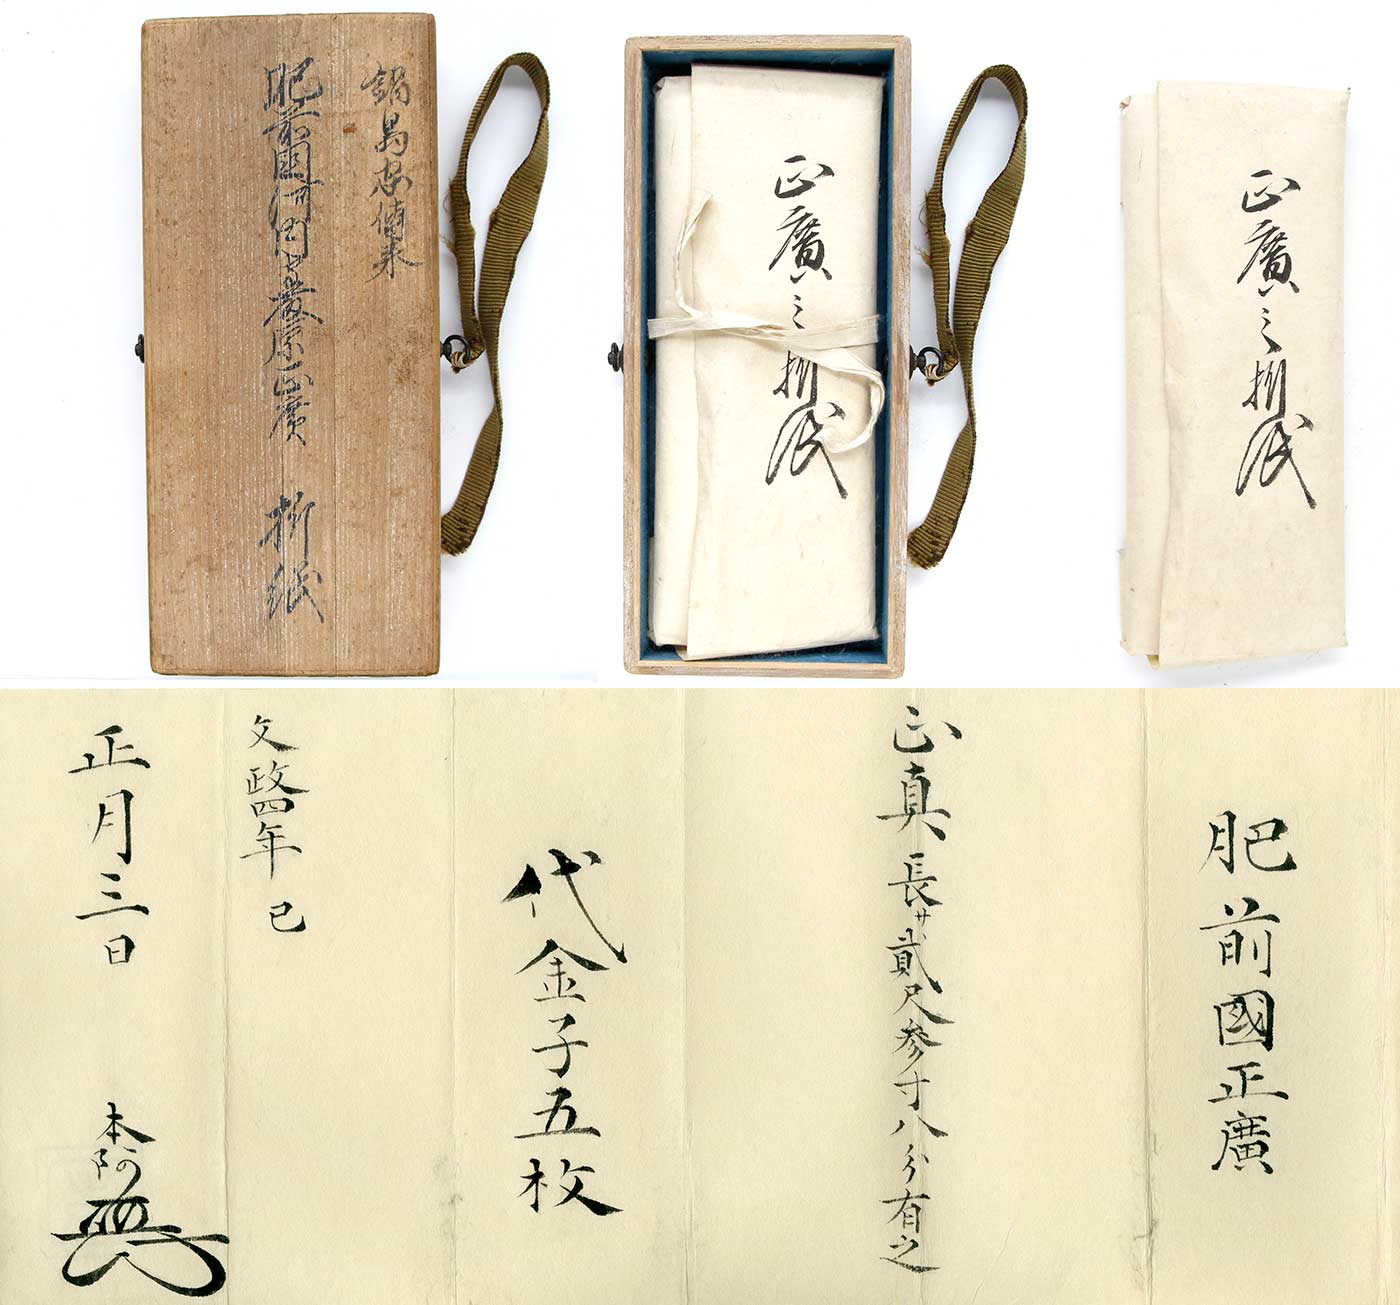 鍋島家傳来
肥前國河内守藤原正廣 折紙
正廣之折紙
正廣之折紙
肥前國正廣
正真 長サ貳尺参寸八分有之
代金子五枚
文政四年 巳
正月三日 本阿